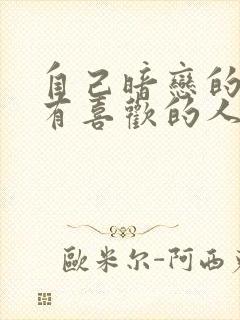 自己暗戀的
有喜歡的人
歐米尔-阿西